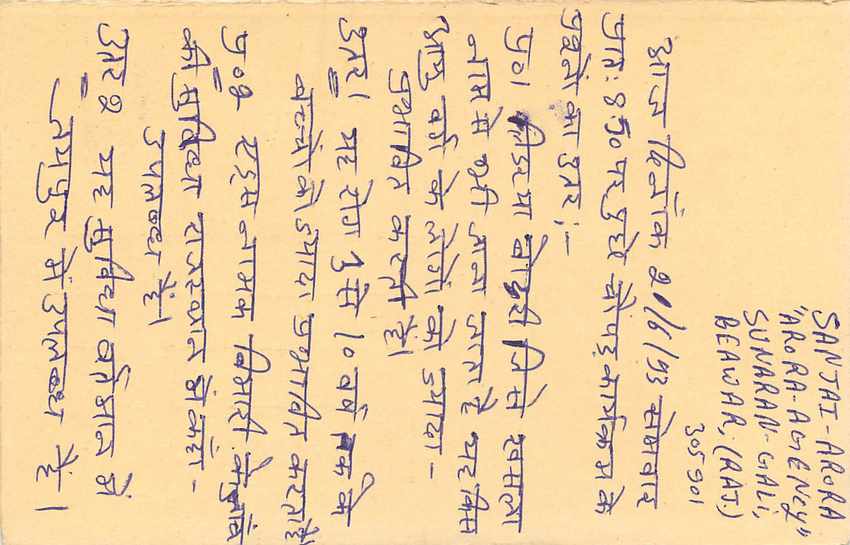 SANJAI-ARORA
"ARORA-AGENCY"
SUNARAN-GALI,
BEAWAR, (RAJ.)
305901
आज दिनांक 21/6/93 सोमवार
प्रातः 8.50 पर पुछे गये कार्यक्रम के
प्रश्नों का उत्तर :-
प्र०1 या बोदरी जिसे खसरा
नाम से भी जाना जाता है यह किस
आयु वर्ग के लोगों को ज्यादा -
प्रभावित करती हैं।
उत्तर। यह रोग 3 से 10 वर्ष तक के
बच्चों को ज्यादा प्रभावित करता है
प्र०2 एड्स नामक बिमारी के जांच
की सुविधा राजस्थान में कहां -
उपलब्ध हैं।
उत्तर 2 यह सुविधा वर्तमान में
जयपुर में उपलब्ध हैं।